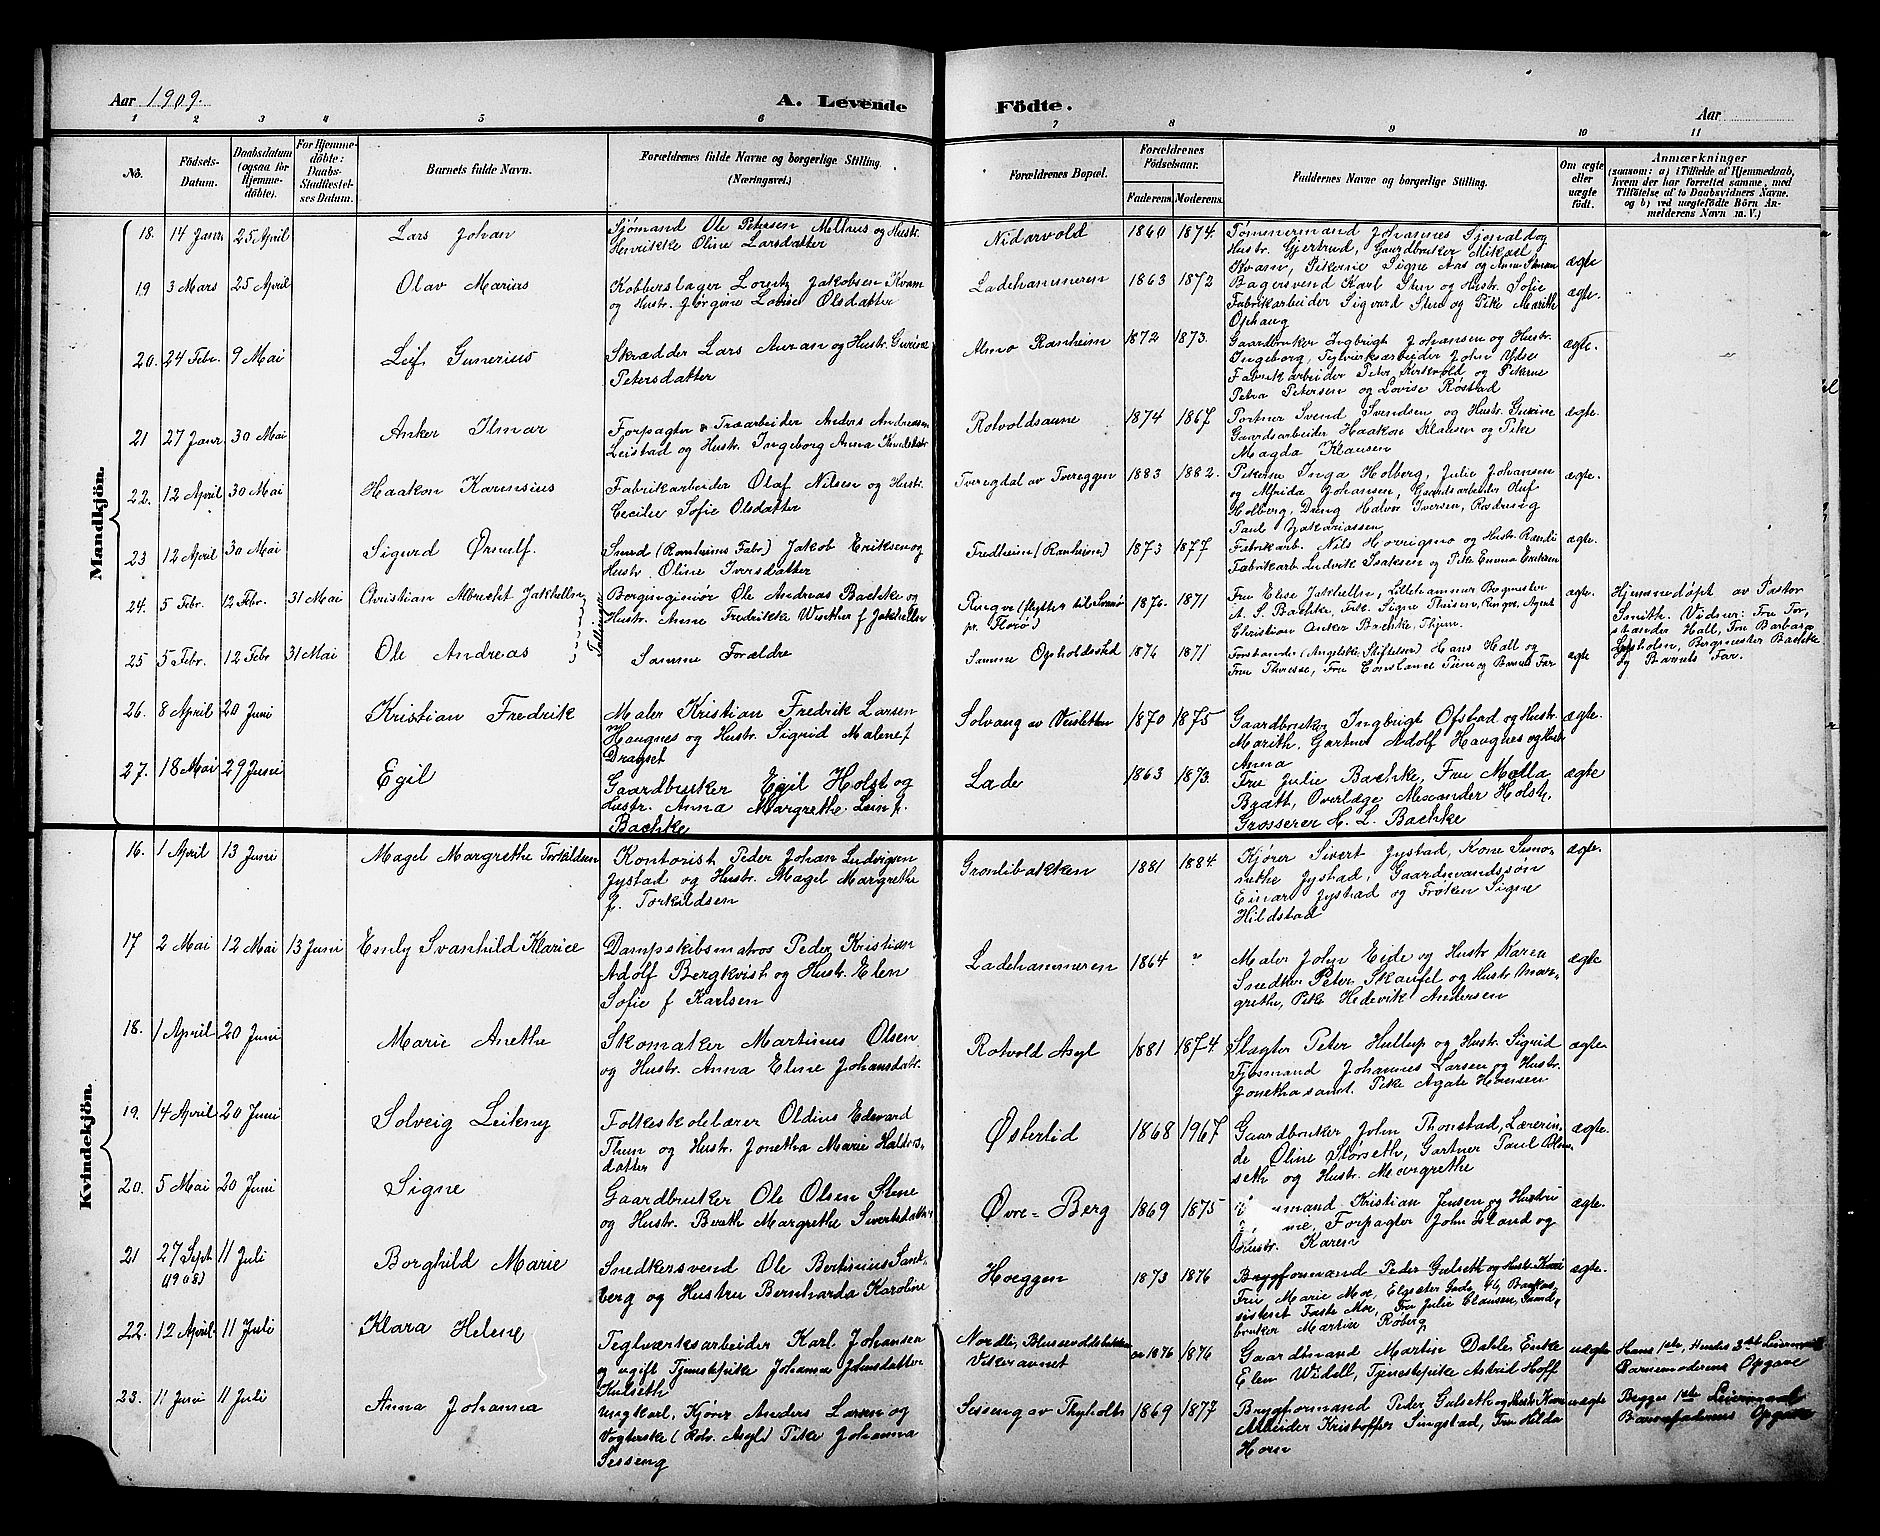 Aar 1909.
A. Levende Födte.
Aar
1 2 3 4 5 6 7 8 9 10 11
No.
Födsels-
Datum.
Daabsdatum
(ogsaa for
Hjemme-
döbte).
For Hjemme-
döbte:
Daabs-
Stadfæstel-
ses Datum.
Barnets fulde Navn.
Forældrenes fulde Navne og borgerlige Stilling
(Næringsvei.)
Forældrenes Bopæl.
Forældrenes
Födselsaar.
Faderens. Moderens.
Faddernes Navne og borgerlige Stilling.
Om ægte
eller
uægte
födt.
Anmærkninger
(saasom: a) i Tilfælde af Hjemmedaab,
hvem der har forrettet samme, med
Tilföielse af to Daabsvidners Navne.
og b) ved uægtefödte Börn An-
melderens Navn m. V.)
Mandkjön.
18. 14 Janr 25 April
Lars Johan
Sjømand Ole Petersen Melhus og Hustr.
Henrikke Oline Larsdatter
Nidarvold
1860 1874.
Tømmermand Johannes
Hustr. Gjertrud, Gaardbruker Mikael
Kvam, Pikerne Signe Aas og
ægte
19 3 Mars 25 April
Olav Marius
Kobberslager Lorentz Jakobsen Kvam
og Hustr. Jørgine Lovise Olsdatter
Ladehammeren
1863 1872
Bagersvend Karl Sten og Hustr. Sofie
Fabrikarbeider Sigvard Sten og Pike Marith
Ophaug
ægte.
20. 24 Febr. 9 Mai
Leif Gunerius
Skrædder Lars Auran og Hustr. Gurine
Petersdatter
Almo Ranheim
1872 1873.
Gaardbruker Ingbrigt Johansen og Hustr.
Ingeborg, Teglverksarbeider John Ydse
Fabrikarbeider Peter og Pikerne
Petra Petersen og Lovise Røstad
ægte.
"
21 27 Janr 30 Mai
Anker Ilmar
Forpagter & Træarbeider Anders Andreassen
Leistad og Hustr. Ingeborg Anna
Rotvoldsaune
1874 1867
Portner Svend Svendsen og Hustr. Gurine
Gaardsarbeider Haakon Klausen og Pike
Magda Klausen
ægte.
22. 12 April 30 Mai
Haakon Karinsius
Fabrikarbeider Olaf Nilsen og Hustr.
Cecilie Sofie Olsdatter
Tveregdal av Tvereggen
1883 1882.
Pikerne Inga Holberg, Julie Johansen
og Alfrida Johansen, Gaardsarbeider Oluf
Holberg, Dreng Halvor Iversen,
Paul Zakariassen
ægte.
23 12 April 30 Mai
Sigurd Ørnulf.
Smed (Ranheims Fabr.) Jakob Eriksen og
Hustr. Oline Iversdatter
Fredheim (Ranheim)
1873 1877
Fabrikarb. Nils og Hustr. Randi
Fabrikarb. Ludvik Isaksen og Pike Emma Eriksen
ægte.
24. 5 Febr. 12 Febr. 31 Mai
Christian Albrecht Jakhellen
Tvillinger
Borgingeniør Ole Andreas Bachke og
Hustr. Anne Fredrikke Winther f Jakhellen
Ringve (flytter til
pr. Florø)
1876. 1871
Fru Elise Jakhellen, Lillehammer Bergmester
A. S. Bachke, Frk. Signe Thiisen, Ringve, Agent
Christian Anker Bachke, Thjem.
ægte.
Hjemmedøpt av Pastor
Smith. Vidner: Fru For-
stander Hall, Fru Barbara
Lysholm, Bergmester Bachke
og Barnets Far.
25 5 Febr. 12 Febr 31 Mai
Ole Andreas
Samme Forældre
Samme Opholdssted
1876 1871
Forstander Hans Hall og
Fru Therese, Fru Constance og Barnets Far
ægte
26. 8 April 20 Juni
Kristian Fredrik
Maler Kristian Fredrik Larsen
Haugnes og Hustr. Sigrid Malene f
Dragset
Solvang av Veisletten
1870 1875
Gaardbruker Ingbrigt Ofstad og Hustr.
Marith. Gartner Adolf Haugnes og Hustr
Anna
ægte.
27. 18 Mai 29 Juni
Egil
Gaardbruker Egil Holst og
Hustr. Anna Margrethe Lein f.
Bachke
Lade
1863 1873.
Fru Julie Bachke, Fru Molla
Bratt, Overlæge Alexander Holst,
Grosserer H. L. Bachke
ægte
Kvindekjön.
16. 1 April 13 Juni
Magel Margrethe Torkildsen
Kontorist Peder Johan Ludvigsen
Jystad og Hustr. Magel Margrethe
f. Torkildsen
Grønlibakken
1881 1884.
Kjører Sivert Jystad, Kone Simo-
nethe Jystad, Gaardmandssøn
Einar Jystad og Frøken Signe
Hildstad
ægte.
17 2 Mai 12 Mai 13 Juni
Emly Svanhild Klarice
Dampskibsmatros Peder Kristian
Adolf Bergkvist og Hustr. Elen
Sofie f Karlsen
Ladehammeren
1864 "
Maler John Eide og Hustr Karen
Snedker Peter Skaufel og Hustr Mar-
grethe, Pike Hedevik Andersen
ægte
18. 1 April 20 Juni
Marie Anethe
Skomaker Martinus Olsen
og Hustr. Anna Eline Johansdatr.
Rotvold Asyl
1881 1874.
Slagter Peter Hullup og Hustr. Sigrid
Fjøsmand Johannes Larsen og Hustr.
Jonetha samt Pike Agate Hansen
ægte
19. 14 April 20 Juni
Solveig Leikny
Folkeskolelærer Oldius Edevard
Thun og Hustr. Jonetha Marie Haldors-
datter
Østerlid
1868 1967
Gaardbruker John Thonstad, Lærerin-
de Oline Størseth, Gartner Paul
seth og Hustr. Margrethe
ægte.
20. 5 Mai 20 Juni
Signe
Gaardbruker Ole Olsen Stene
og Hustr. Berethe Margrethe Sivertsdatter
Øvre-Berg
1869 1875
Kristian Jensen og Hustru
Forpagter John Island og
Hustr. Karen
ægte.
21 27 Sept (1908) 11 Juli
Borghild Marie
Snedkersvend Ole Bertinius Sand-
berg og Hustru Bernharda Karoline
Hoeggen
1873 1876
Brygformand Peder Gulseth og Hustr. Kari
Fru Marie Moe, Elgseter Gade 12,
Faste Moe, Fru Julie Clausen, Gaard-
bruker Martin Røberg
ægte.
22. 12 April 11 Juli
Klara Helene
Teglværksarbeider Karl Johansen
og ugift Tjenestepike Johanne Johnsdatter
Hulseth
Nordli, Blussevoldsbakken
Vikeraunet
1876 1876
Gaardmand Martin Dahle, Enke
Elen Widell, Tjenestepike Astrid Hoff
uægte
Hans 1ste, Hendes 3die Leiermaal
Barnemoderens Opgave
23. 11 Juni 11 Juli
Anna Johanna
Ungkarl, Kjører Anders Larsen og
Vogterske (Rotv. Asyl) Pike Johanna
Sesseng
Sesseng av Thyholts
1869 1877
Brygformand Peder Gulseth og Hustr. Kari
Arbeider Kristoffer Singstad, Fru Hilda
Horn
uægte
Begges 1ste Leiermaal
Barnefaderens Opgave